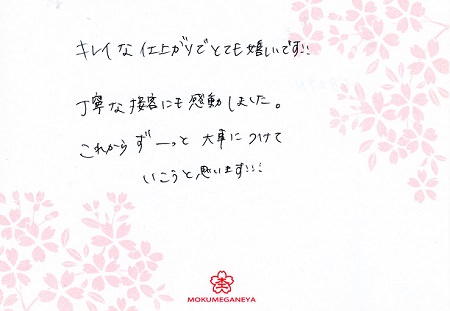 キレイな仕上がりでとても嬉しいです!!
丁寧な接客にも感動しました。
これからずーっと大事につけて
いこうと思います!!!
MOKUMEGANEYA